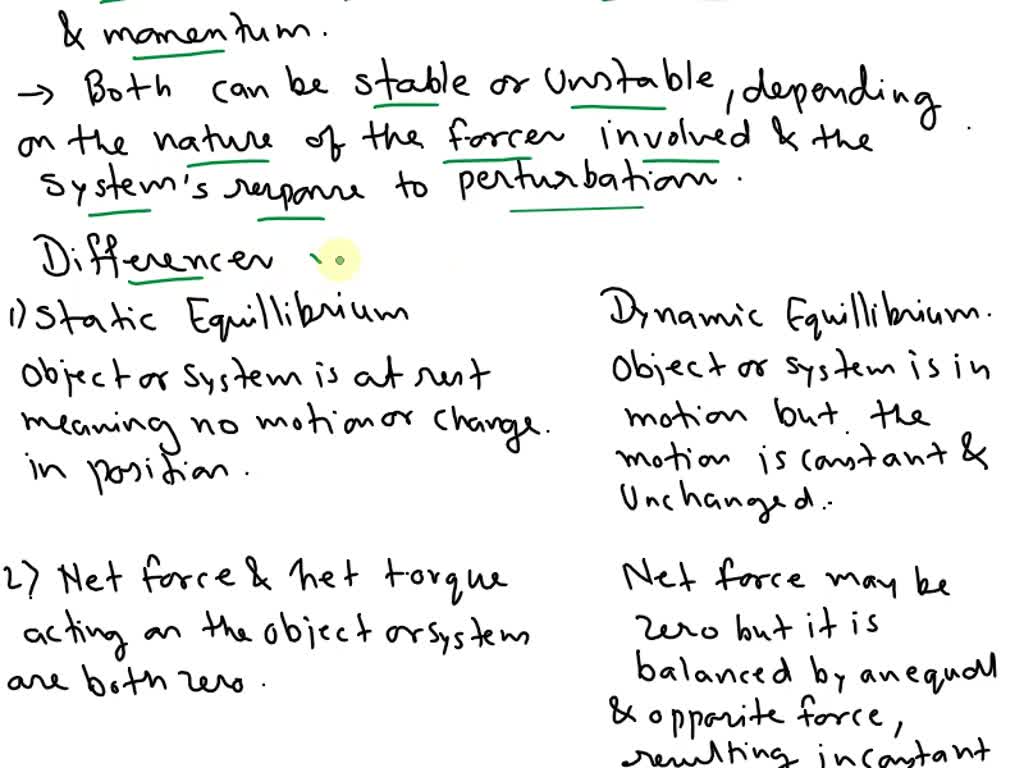 & momentum.
→ Both can be stable or Unstable, depending
on the nature of the forces involved & the
System's response to perturbation.
Differences
1) Static Equillibrium
Object or System is at rest
meaning no motion or change.
in position.
2) Net force & net torque
acting on the object or system
are both zero.
Dynamic Equillibrium.
Object or system is in
motion but the
motion is constant &
Unchanged.
Net force may be
zero but it is
balanced by an equall
& opposite force,
resulting in constant